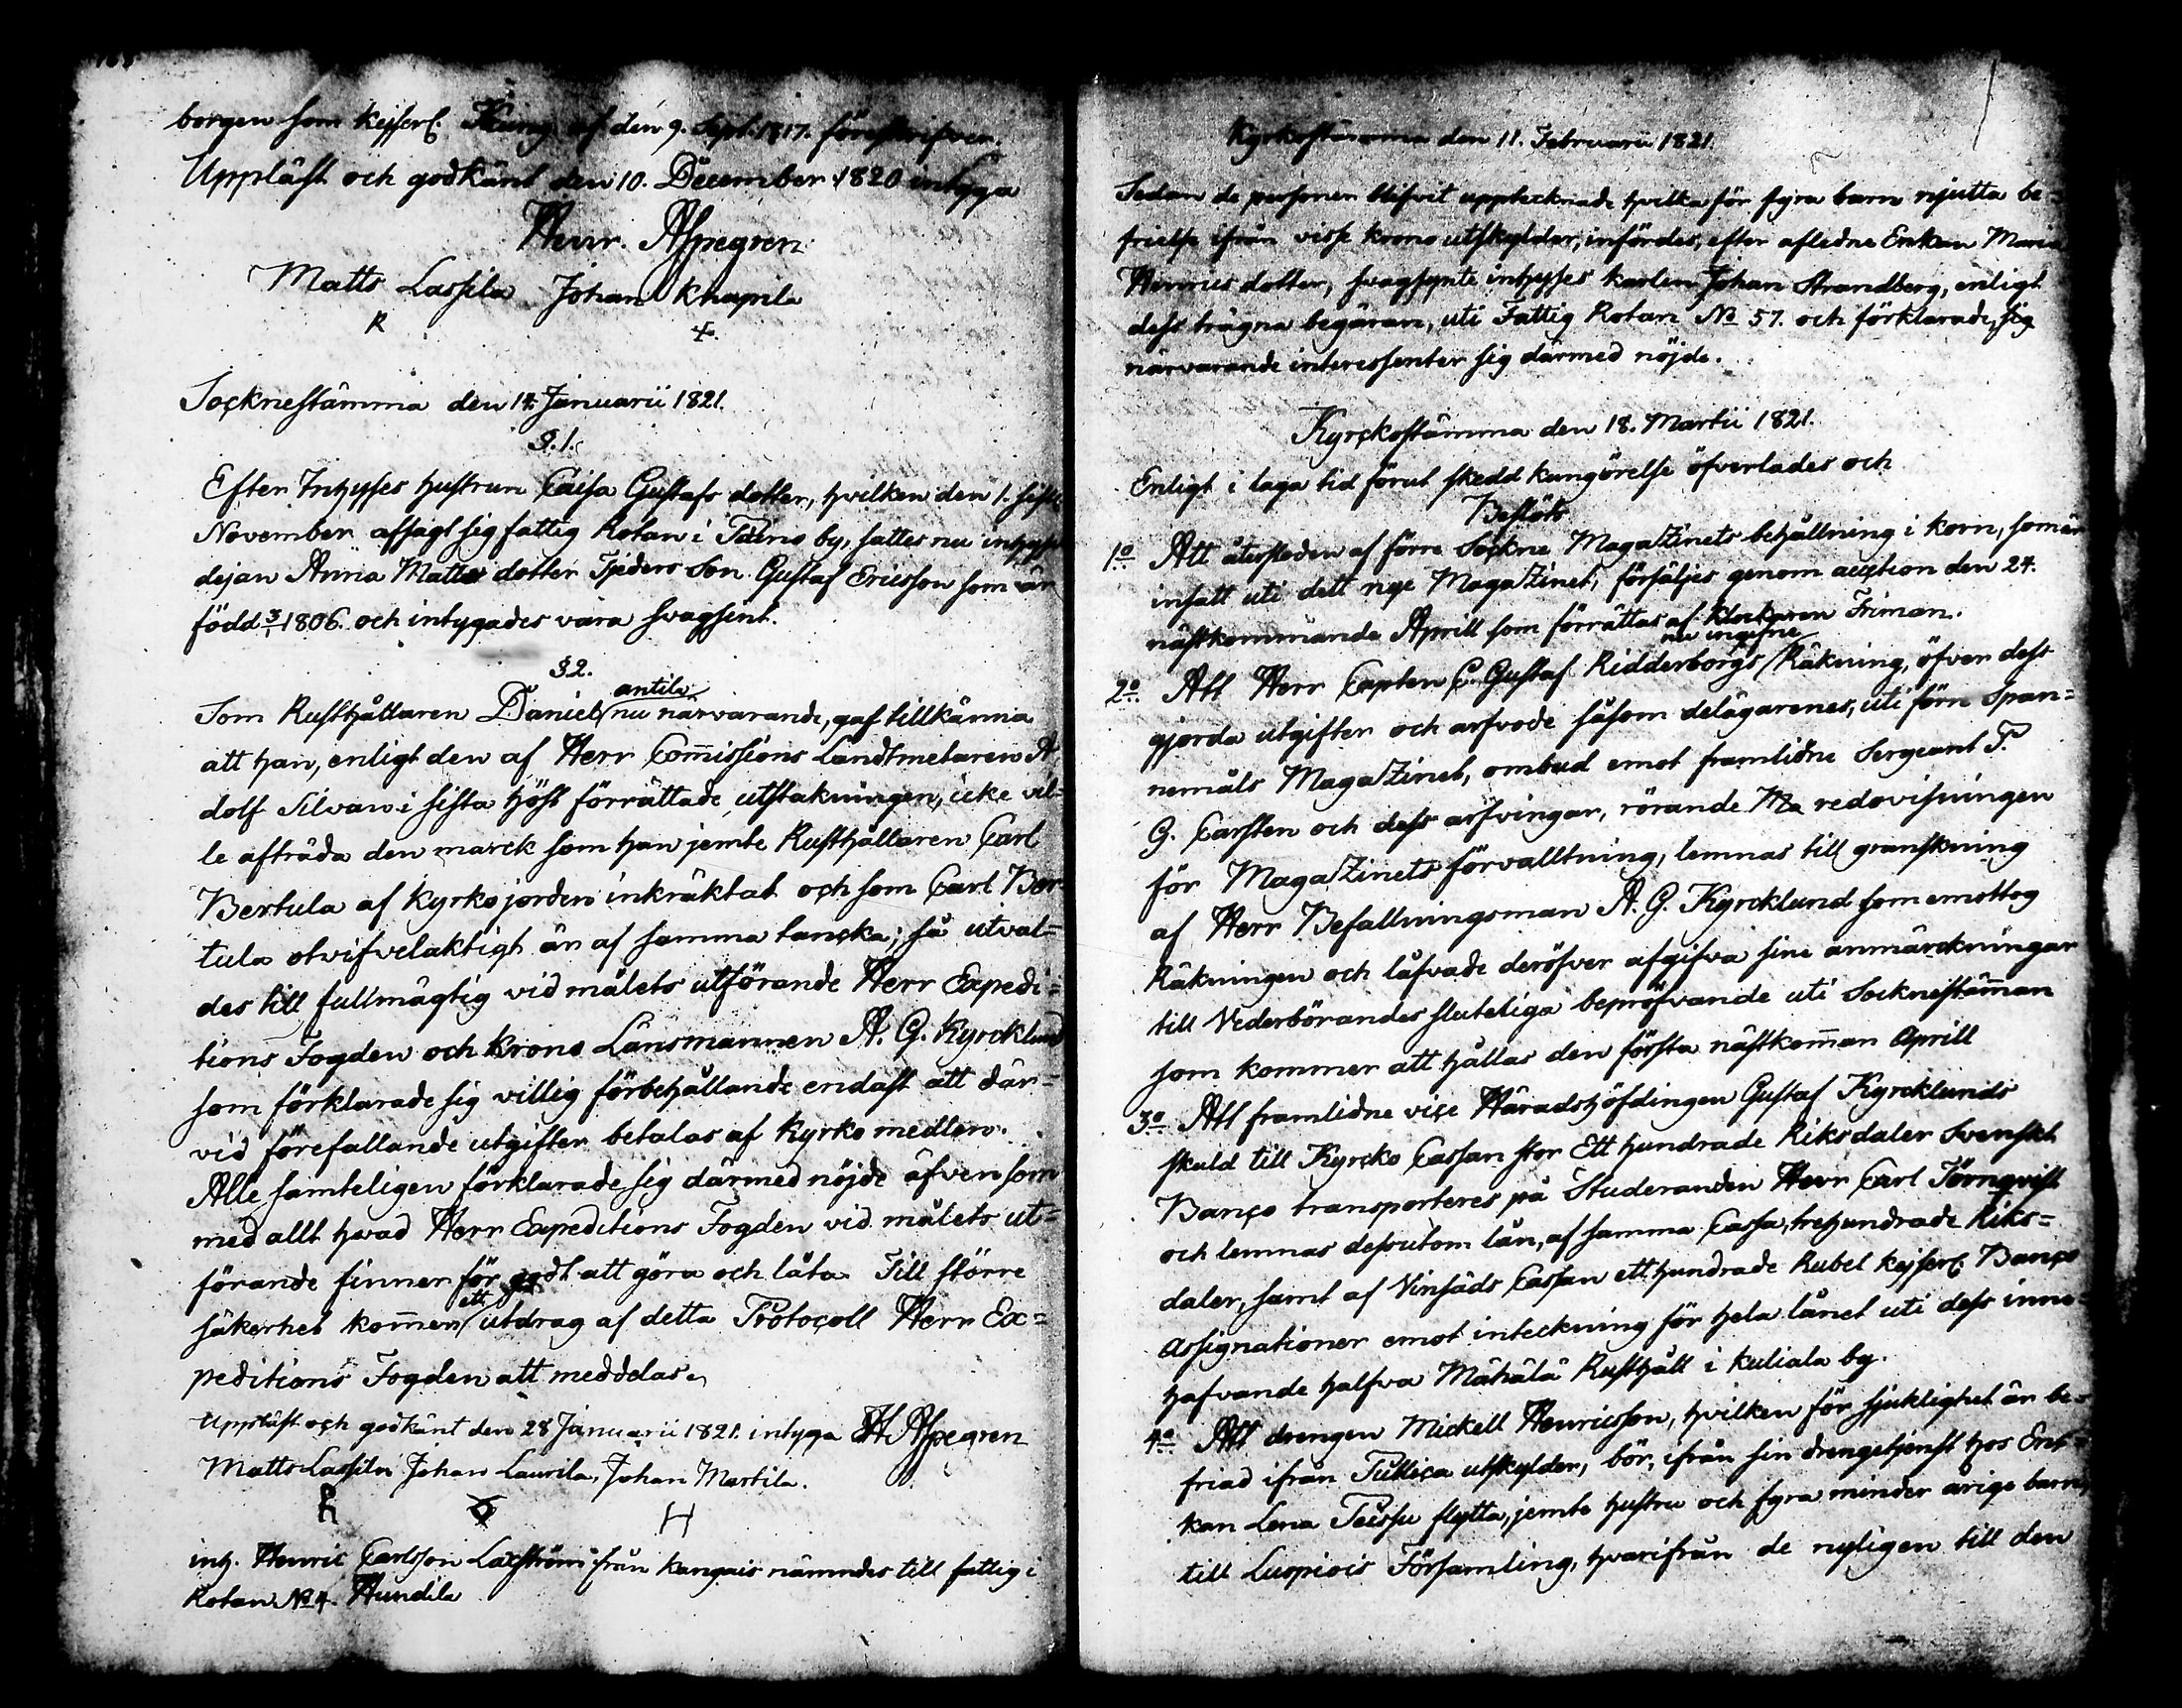 borgen som kejserl. Kung. af den 9. Sept. 1817. föreskrifver.
Uppläst och godkänt den 10. December 1820 intyga
Henr. Aspegren
Matts Lassila Johan Knapila
R +
Sockne­stämma den 14. Januarii 1821.
§.1.
Efter Inhyses hustrun Caisa Gustafs dotter, hvilken den 1. siste
November afsagt sig fattig Rotan i by, sattes nu inhyses
dejan Anna Matts dotter Tjeders son Gustaf Ericsson som är
född 3/1 1806. och intygades vara svagsint.
§2.
antila
Som Rusthållaren Daniel nu närvarande, gaf tillkänna
att han, enligt den af Herr Com̄issions Landtmetaren A
dolf Silvan i sista höst förrättade utstakningen, icke vil-
le afträda den marck som han jemte Rusthållaren Carl
Bertula af Kyrko jorden inkräktat och som Carl Ber-
tula otvifvelaktigt är af samma tancka; så utval=
des till fullmägtig vid målets utförande Herr Expedi=
tions Fogden och Krono Länsmannen A. G. Kyrcklund
som förklarade sig villig förbehållande endast att där=
vid förefallande utgifter betalas af Kyrko medlen.
Alle samteligen förklarade sig därmed nöjde äfven som
med allt hvad Herr Expeditions Fogden vid målets ut=
förande finner för godt att göra och låta. Till större
ett
säkerhet kom̄er utdrag af detta Protocoll Herr Ex=
peditions Fogden att meddelas.
Uppläst och godkänt den 28 Januarii 1821. intyga H Aspegren
Matts Lassila Johan Laurila, Johan Martila.
H
inh. Henric Carlsson Laxström från Kangais nämndes till fattig i
Rotan No 4. Hundila
Kyrkostämma den 11. Februarii 1821.
Sedan de personer blifvit uppteknade hvilka för fyra barn njutta be=
frielse ifrån visse krono utskylder, infördes, efter aflidne Enkan Maria
Henrics dotter, svagsynte inhyses karlen Johan Strandberg, enligt
dess trägna begäran, uti Fattig Rotan No 57. och förklarade sig
närvarande interessenter sig därmed nöjde.
Kyrckostämma den 18. Martii 1821.
Enligt i laga tid förut skedd kungörelse öfverlades och
Beslöts
1o Att återstoden af förre Sockne Magatzinets behållning i korn, som är
insatt uti dett nye Magatzinet, försäljes genom auction den 24.
nästkommande Aprill som förrättas af Klockaren Friman.
nu ingifne
2o Att Herr Capten C. Gustaf Ridderborgs Räkning, öfver dess
gjorda utgifter och arfvode såsom delägarenes, uti förre Span=
nemåls Magatzinet, ombud emot framlidne Sergeant T.
G. Carsten och dess arfvingar, rörande redovisningen
för Magatzinets förvalltning, lemnas till granskning
af Herr Befallningsman A. G. Kyrcklund som emottog
Räkningen och låfvade deröfver afgifva sine anmärckningar
till Vederbörandes sluteliga bepröfvande uti Socknestäm̄an
som kommer att hållas den första nästkom̄an Aprill
3o Att framlidne vice Häradshöfdingen Gustaf Kyrcklunds
skuld till Kyrcko Cassan stor Ett hundrade Riksdaler Svenskt
Banco transporteres på Studeranden Herr Carl Törnqvist
och lemnas dessutom lån, af samma Cassa, trehundrade Riks=
daler, samt af Vinsäds Cassan ett hundrade Rubel kejserl. Banco
Assignationer emot inteckning för hela lånet uti dess inne
hafvande halfva Mähälä Rusthåll i Kuliala by.
4o Att drengen Mickell Henricsson, hvilken för sjuklighet är be=
friad ifrån Publica utskylder, bör, ifrån sin drengetjenst hos Enc
kan Lena Teissu flytta, jemte hustru och fyra minder årige barn,
till Luopiois Församling, hvarifrån de nyligen till den